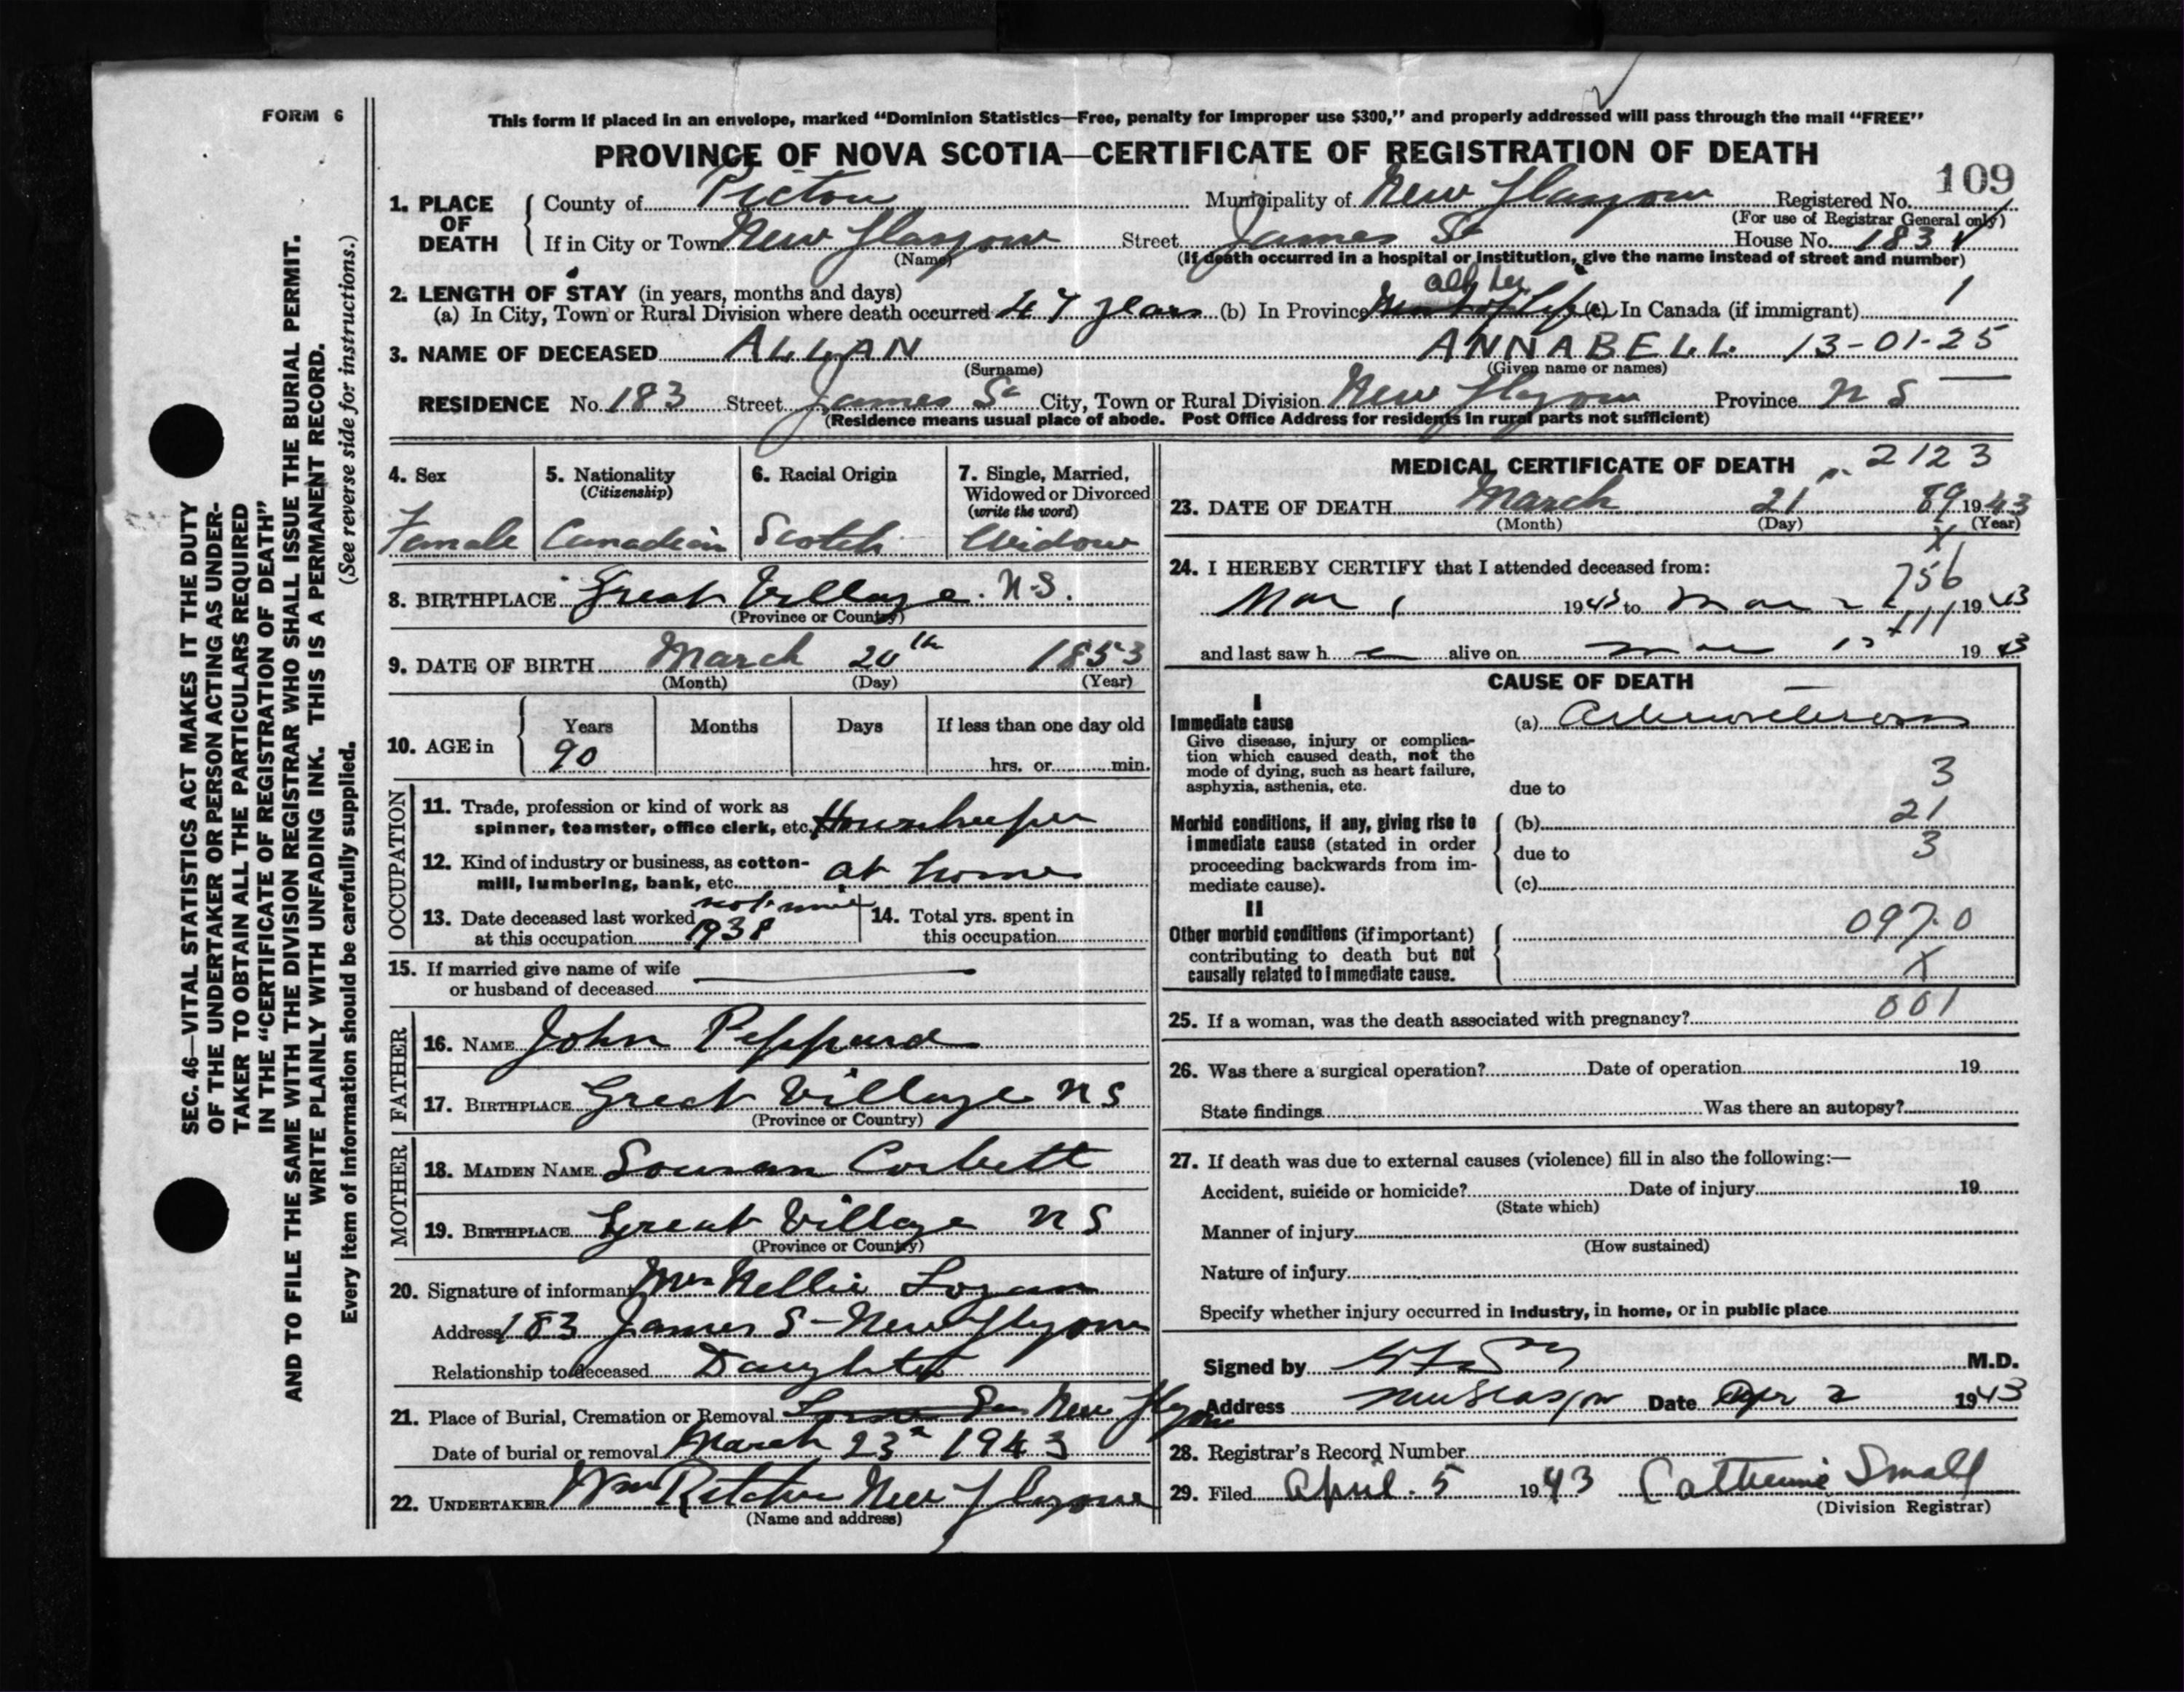 FORM 6
This form if placed in an envelope, marked “Dominion Statistics—Free, penalty for improper use $300,” and properly addressed will pass through the mail “FREE”
PROVINCE OF NOVA SCOTIA—CERTIFICATE OF REGISTRATION OF DEATH
109
1. PLACE OF DEATH County of Pictou Municipality of New Glasgow Registered No.
(For use of Registrar General only)
If in City or Town New Glasgow Street James St House No. 183
(Name) (If death occurred in a hospital or institution, give the name instead of street and number)
2. LENGTH OF STAY (in years, months and days) all her
(a) In City, Town or Rural Division where death occurred 47 years (b) In Province life (c) In Canada (if immigrant) 1
3. NAME OF DECEASED ALLAN ANNABELL 13-01-25
(Surname) (Given name or names)
RESIDENCE No. 183 Street James St City, Town or Rural Division New Glasgow Province N S
(Residence means usual place of abode. Post Office Address for residents in rural parts not sufficient)
4. Sex 5. Nationality (Citizenship) 6. Racial Origin 7. Single, Married, Widowed or Divorced (write the word)
Female Canadian Scotch Widow
8. BIRTHPLACE Great Village. N.S.
(Province or Country)
9. DATE OF BIRTH March 20th 1853
(Month) (Day) (Year)
10. AGE in Years Months Days If less than one day old
90 hrs. or min.
OCCUPATION
11. Trade, profession or kind of work as
spinner, teamster, office clerk, etc. Housekeeper
12. Kind of industry or business, as cotton-
mill, lumbering, bank, etc. at home
13. Date deceased last worked
at this occupation 1938
14. Total yrs. spent in
this occupation
15. If married give name of wife
or husband of deceased
FATHER
16. NAME John Peppard
17. BIRTHPLACE Great Village N S
(Province or Country)
MOTHER
18. MAIDEN NAME Sousan Corbett
19. BIRTHPLACE Great Village N S
(Province or Country)
20. Signature of informant Mrs Nellie Logan
Address 183 James S - New Glasgow
Relationship to deceased Daughter
21. Place of Burial, Cremation or Removal New Glasgow
Date of burial or removal March 23rd 1943
22. UNDERTAKER Wm Ritchie New Glasgow
(Name and address)
MEDICAL CERTIFICATE OF DEATH 2123
23. DATE OF DEATH March 21 89 1943
(Month) (Day) (Year)
X
24. I HEREBY CERTIFY that I attended deceased from:
756
Mar 1 1943 to Mar 2 1943
111
and last saw h alive on Mar 1943
CAUSE OF DEATH
I
Immediate cause (a) Arteriosclerosis
Give disease, injury or complica-
tion which caused death, not the
mode of dying, such as heart failure,
asphyxia, asthenia, etc.
due to 3
Morbid conditions, if any, giving rise to
immediate cause (stated in order
proceeding backwards from im-
mediate cause).
(b) 21
due to 3
(c)
II
Other morbid conditions (if important)
contributing to death but not
causally related to immediate cause.
097.0
X
25. If a woman, was the death associated with pregnancy? 001
26. Was there a surgical operation? Date of operation 19
State findings Was there an autopsy?
27. If death was due to external causes (violence) fill in also the following:—
Accident, suicide or homicide? Date of injury 19
(State which)
Manner of injury
(How sustained)
Nature of injury
Specify whether injury occurred in industry, in home, or in public place
Signed by M.D.
Address New Glasgow Date Apr 2 1943
28. Registrar's Record Number
29. Filed April. 5 1943 Catherine Small
(Division Registrar)
SEC. 46—VITAL STATISTICS ACT MAKES IT THE DUTY
OF THE UNDERTAKER OR PERSON ACTING AS UNDER-
TAKER TO OBTAIN ALL THE PARTICULARS REQUIRED
IN THE “CERTIFICATE OF REGISTRATION OF DEATH”
AND TO FILE THE SAME WITH THE DIVISION REGISTRAR WHO SHALL ISSUE THE BURIAL PERMIT.
WRITE PLAINLY WITH UNFADING INK. THIS IS A PERMANENT RECORD.
Every item of information should be carefully supplied. (See reverse side for instructions.)